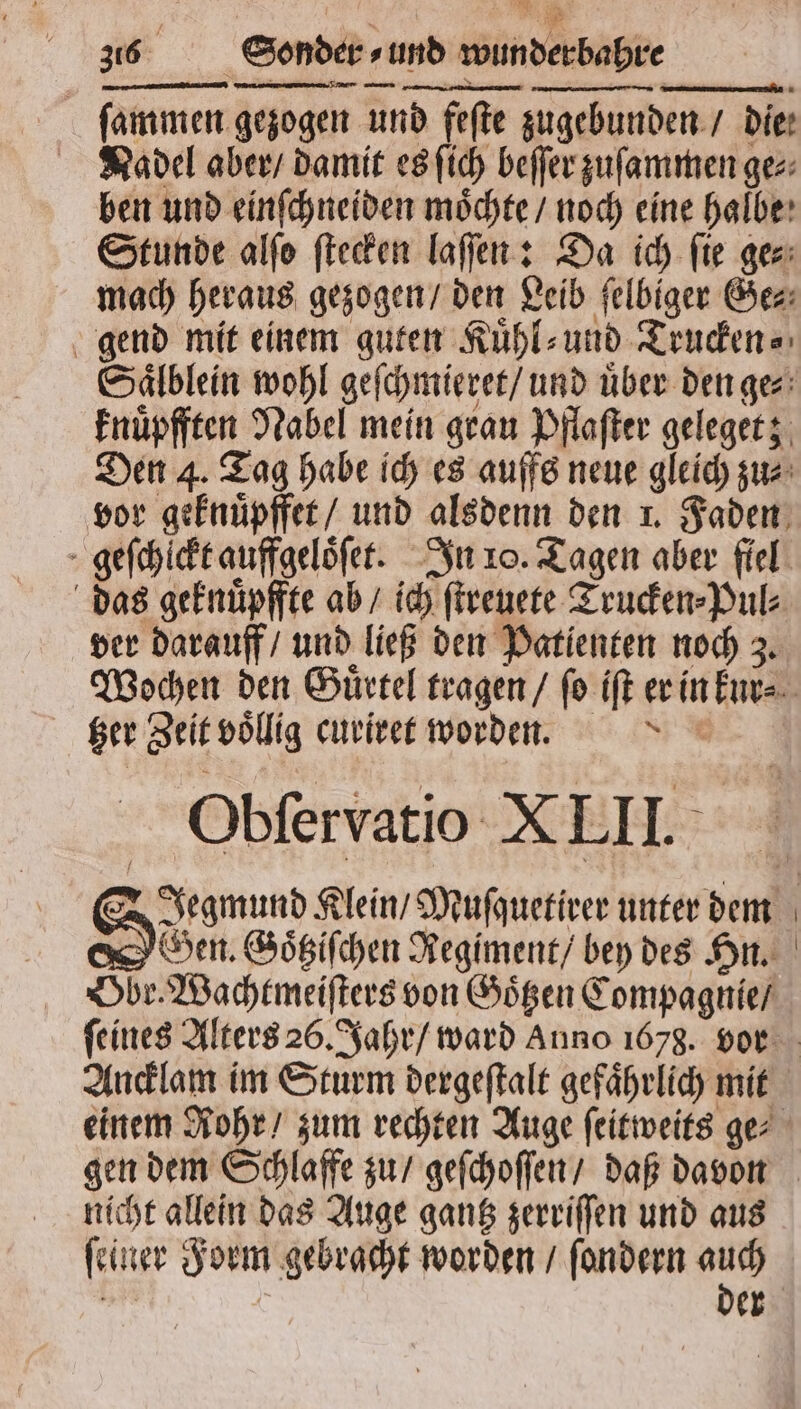 316 Sonder⸗und wunderbahre
ſammen gezogen und feſte zugebunden / die
Nadel aber/ damit es ſich beſſer zuſammen ge⸗
ben und einſchneiden moͤchte / noch eine halbe
Stunde alſo ſtecken laſſen: Da ich ſie ge⸗
mach heraus gezogen/ den Leib ſelbiger Ge⸗
gend mit einem guten Kuͤhl⸗und Trucken⸗
Saͤlblein wohl geſchmieret/ und uͤber den ge⸗
knuͤpfften Nabel mein grau Pflaſter geleget;
Den 4. Tag habe ich es auffs neue gleich zu⸗
vor geknuͤpffet / und alsdenn den 1. Faden
geſchickt auffgeloͤſet. In 10. Tagen aber fiel
das geknuͤpffte ab / ich ſtreuete Trucken⸗Pul⸗
ver darauff / und ließ den Patienten noch 3.
Wochen den Guͤrtel tragen / ſo iſt er in kur⸗
tzer Zeit voͤllig curiret worden.
Obſervatio XLII.
SJegmund Klein/ Muſquetirer unter dem
Gen. Goͤtziſchen Regiment/ bey des Hn.
Obr. Wachtmeiſters von Goͤtzen Compagnie/
ſeines Alters 26. Jahr/ ward Anno 1678. vor
Ancklam im Sturm dergeſtalt gefaͤhrlich mit
einem Rohr / zum rechten Auge ſeitweits ge⸗
gen dem Schlaffe zu / geſchoſſen / daß davon
nicht allein das Auge gantz zerriſſen und aus
ſeiner Form gebracht worden / ſondern auch
der